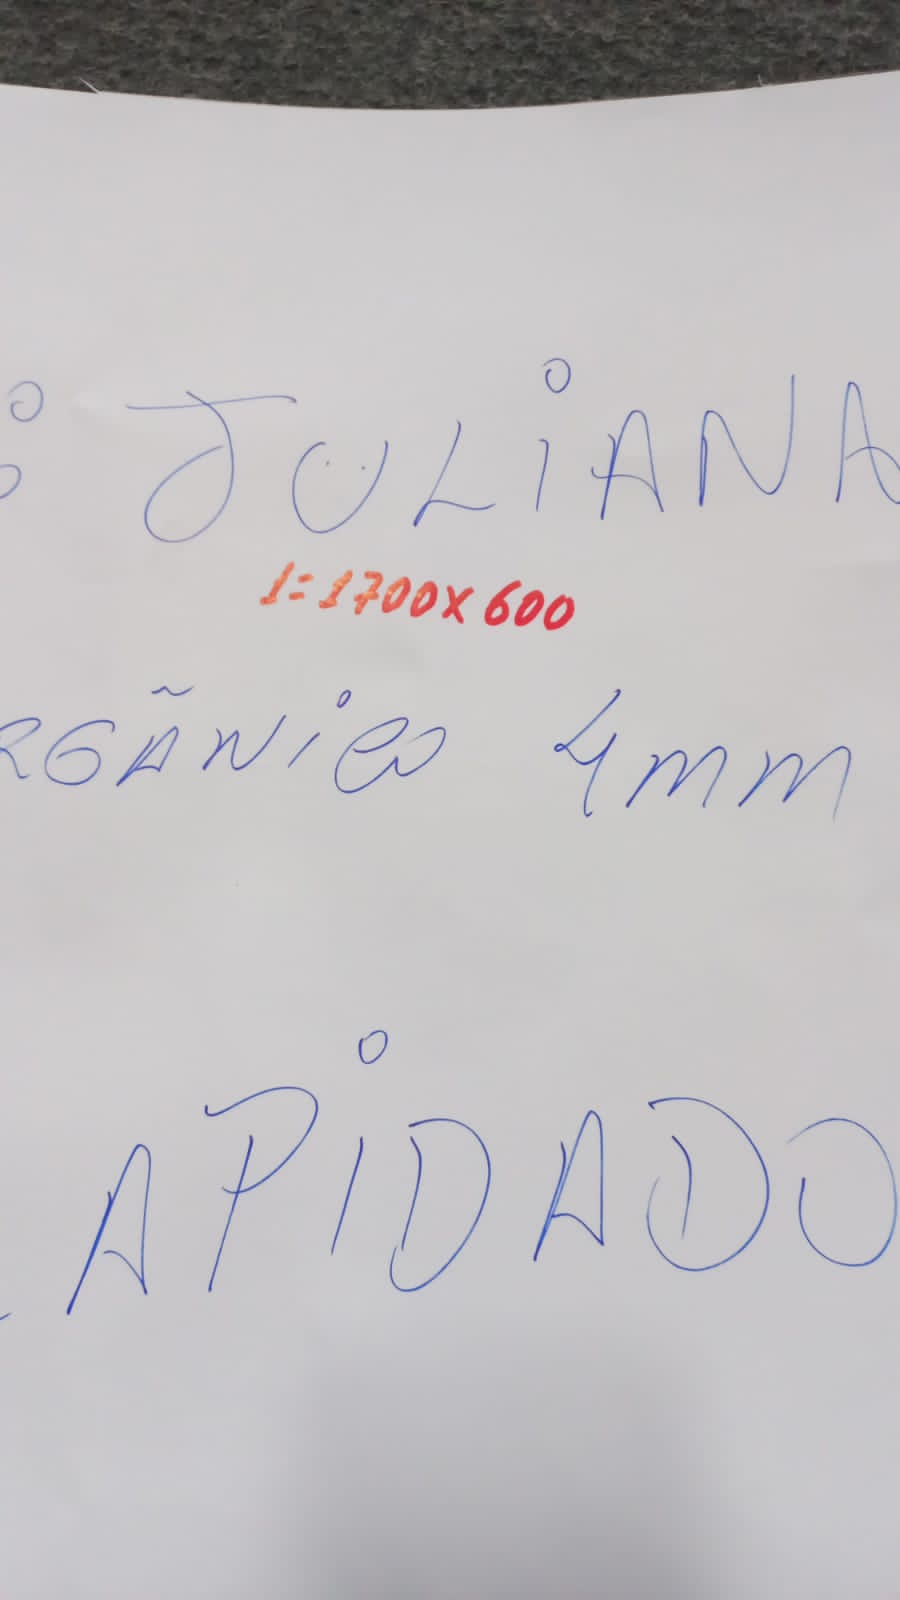 JULIANA
1=1700x600
RGÃNICO 4mm
APIDADO